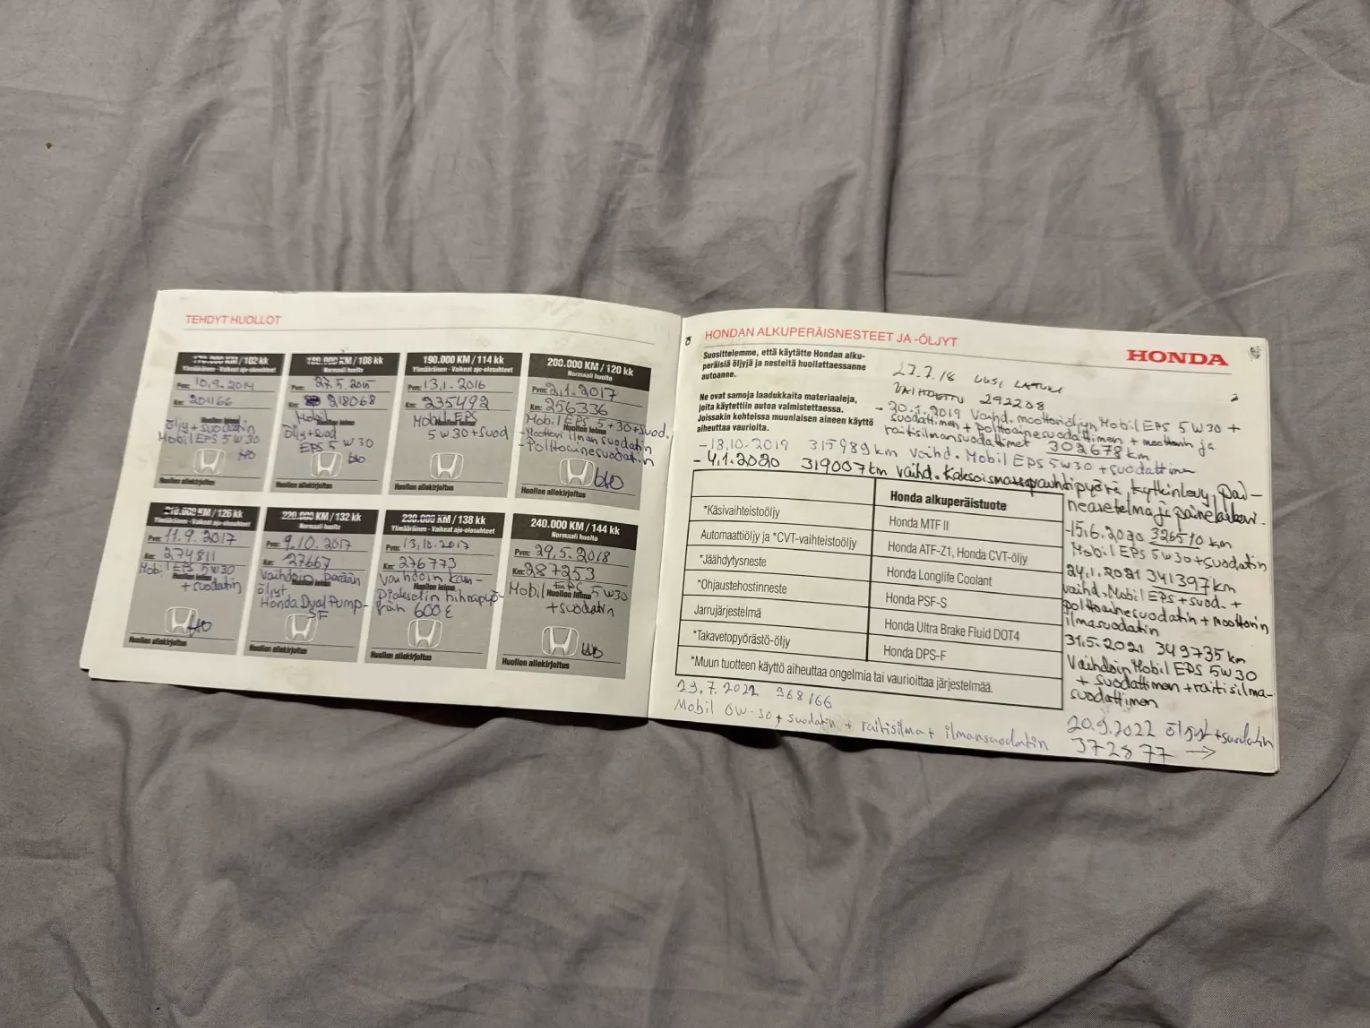 TEHDYT HUOLLOT
170.000 KM / 102 kk
Ylimääräinen - Vaikeat ajo-olosuhteet
Pvm: 10.9.2014
Km: 201166
Huollon leima
öljy + suodatin
Mobil EPS 5W30
Huollon allekirjoitus
180.000 KM / 108 kk
Normaali huolto
Pvm: 27.5.2015
Km: 218068
Mobil
Huollon leima
öljy + suod
EPS 5W30
Huollon allekirjoitus
190.000 KM / 114 kk
Ylimääräinen - Vaikeat ajo-olosuhteet
Pvm: 13.1.2016
Km: 235492
Mobil EPS
Huollon leima
5W30 + suod
Huollon allekirjoitus
200.000 KM / 120 kk
Normaali huolto
Pvm: 2.1.2017
Km: 256336
Mobil EPS 5+30+suod.
Huollon leima
- Moottorin ilmansuodatin
- Polttoainesuodatin
Huollon allekirjoitus
210.000 KM / 126 kk
Ylimääräinen - Vaikeat ajo-olosuhteet
Pvm: 11.9.2017
Km: 274811
Mobil EPS 5W30
Huollon leima
+ suodatin
Huollon allekirjoitus
220.000 KM / 132 kk
Normaali huolto
Pvm: 9.10.2017
Km: 27667
vaihdoin perään
Huollon leima
öljyt
Honda Dual Pump-
Huollon allekirjoitus
230.000 KM / 138 kk
Ylimääräinen - Vaikeat ajo-olosuhteet
Pvm: 13.10.2017
Km: 276773
vaihdoin kam-
Huollon leima
piakselin hihnapyö-
rän 600 €
Huollon allekirjoitus
240.000 KM / 144 kk
Normaali huolto
Pvm: 29.5.2018
Km: 287253
Mobil EPS 5W30
Huollon leima
+ suodatin
Huollon allekirjoitus
HONDAN ALKUPERÄISNESTEET JA -ÖLJYT
HONDA
Suosittelemme, että käytätte Hondan alku-
peräisiä öljyjä ja nesteitä huollattaessanne
autoanne.
Ne ovat samoja laadukkaita materiaaleja,
joita käytettiin autoa valmistettaessa.
Joissakin kohteissa muunlaisen aineen käyttö
aiheuttaa vaurioita.
27.7.18 UUSI LATURI
VAIHDETTU 292208
- 20.1.2019 Vaihd. moottoriöljyn Mobil EPS 5W30 +
suodattimen + polttoainesuodattimen + moottorin ja
raitisilmansuodattimet 302678 km
- 13.10.2019 315989 km vaihd. Mobil EPS 5W30 + suodattimen
- 4.1.2020 319007 km vaihd. Kaksoismassavauhtipyörä, kytkinlevy, pai-
neasetelma ja painelaakeri.
Honda alkuperäistuote
*Käsivaihteistoöljy
Honda MTF II
Automaattiöljy ja *CVT-vaihteistoöljy
Honda ATF-Z1, Honda CVT-öljy
*Jäähdytysneste
Honda Longlife Coolant
*Ohjaustehostinneste
Honda PSF-S
Jarrujärjestelmä
Honda Ultra Brake Fluid DOT4
*Takavetopyörästö-öljy
Honda DPS-F
*Muun tuotteen käyttö aiheuttaa ongelmia tai vaurioittaa järjestelmää.
- 15.6.2020 326510 km
Mobil EPS 5W30 + suodatin
24.1.2021 341397 km
vaihd. Mobil EPS + suod. +
polttoainesuodatin + moottorin
ilmasuodatin
31.5.2021 349735 km
Vaihdoin Mobil EPS 5W30
+ suodattimen + raitisilma-
suodattimen
29.7.2022 368166
Mobil 0W-30 + suodatin + raitisilma + ilmansuodatin
20.9.2022 öljyt + suodatin
372877 →